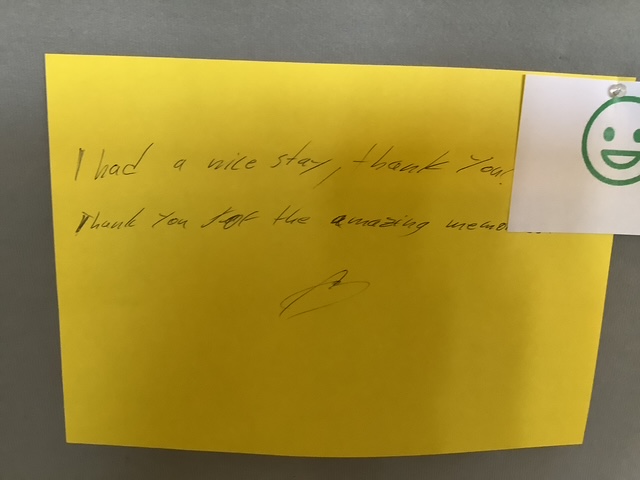 I had a nice stay, thank you!
Thank you for the amazing